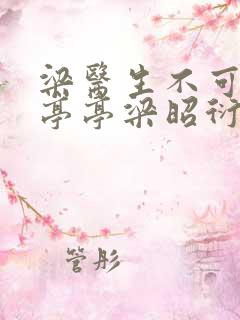 梁醫生不可
亭亭梁昭衍
管彤